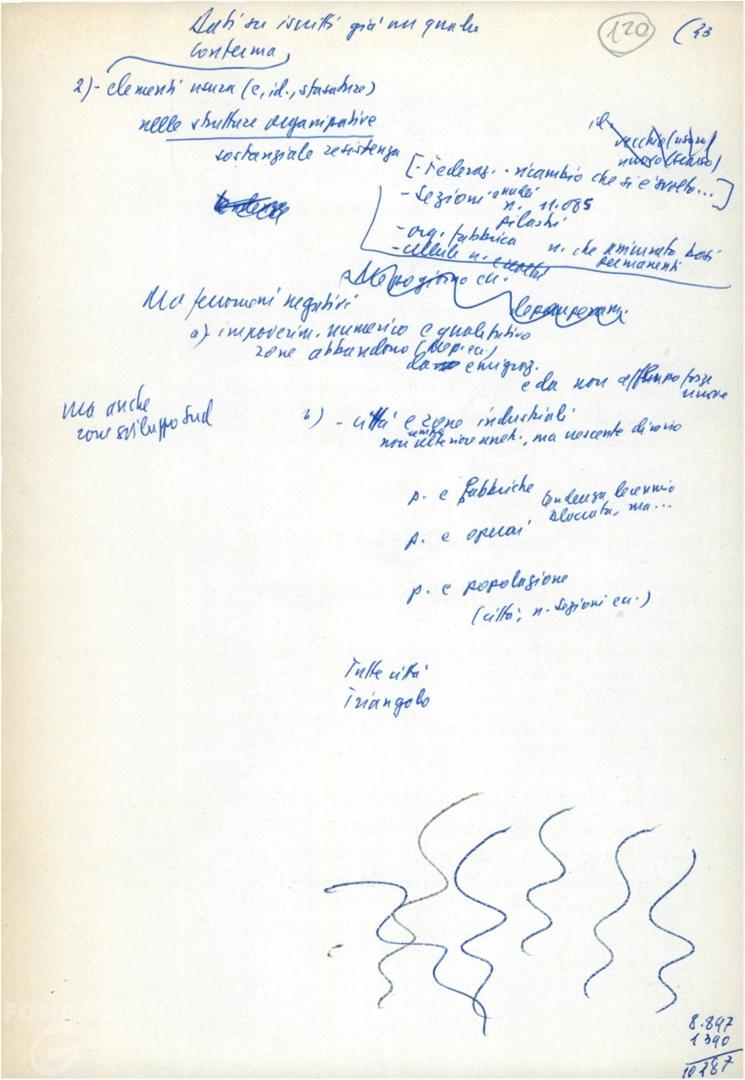 Dati su iscritti già un qualche
conferma
120
(33
2) - elementi usura (e, id., sfasature)
nelle strutture organizzative
sostanziale resistenza
id
vecchio (usura)
nuovo (scarso)
[- Federaz. - ricambio che si è svolto...]
- Sezioni onudei
n. 11.085
pilastri
- org. fabbrica
- cellule n.
n. che rimunato basi
permanenti
Mezzogiorno ecc.
Ma fenomeni negativi
a) impoverim. numerico e qualitativo
zone abbandono (Mep. ecc.)
da emigraz.
e da non afflusso forze
nuove
ma anche
zone sviluppo Sud
b) - città e zone industriali
sempre
non ulteriore, ma crescente divario
p. e fabbriche
tendenza decennio
bloccata, ma...
p. e operai
p. e popolazione
(città; n. Sezioni ecc.)
Tutte città
Triangolo
FONDAZIONE
GRAMSCI
8.897
1390
10287